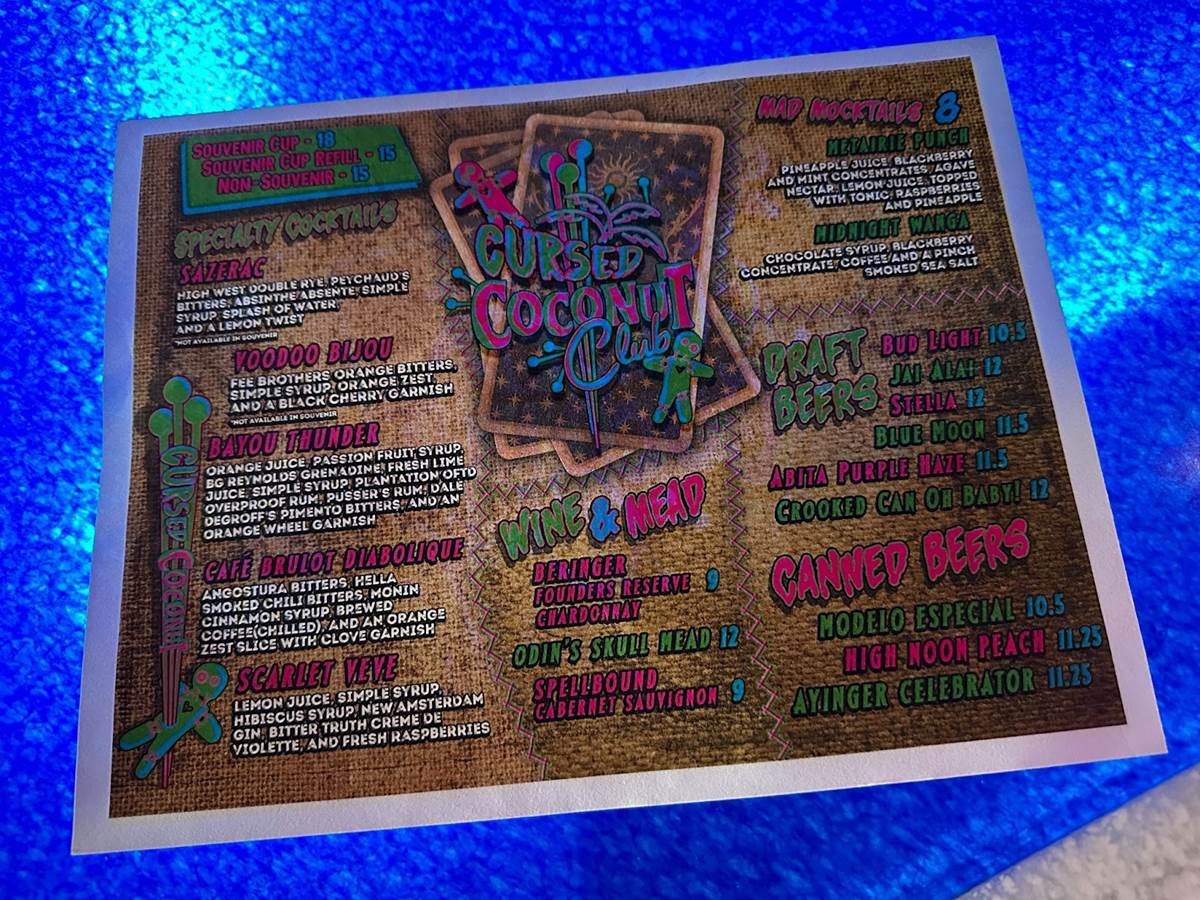 SOUVENIR CUP - 18
SOUVENIR CUP REFILL - 15
NON-SOUVENIR - 15
SPECIALTY COCKTAILS
SAZERAC
HIGH WEST DOUBLE RYE, PEYCHAUD'S
BITTERS, ABSINTHE ABSENTE, SIMPLE
SYRUP, SPLASH OF WATER
AND A LEMON TWIST
*NOT AVAILABLE IN SOUVENIR
VOODOO BIJOU
FEE BROTHERS ORANGE BITTERS,
SIMPLE SYRUP, ORANGE ZEST,
AND A BLACK CHERRY GARNISH
*NOT AVAILABLE IN SOUVENIR
BAYOU THUNDER
ORANGE JUICE, PASSION FRUIT SYRUP,
BG REYNOLDS GRENADINE, FRESH LIME
JUICE, SIMPLE SYRUP, PLANTATION OFTD
OVERPROOF RUM, PUSSER'S RUM, DALE
DEGROFF'S PIMENTO BITTERS, AND AN
ORANGE WHEEL GARNISH
CAFÉ BRULOT DIABOLIQUE
ANGOSTURA BITTERS, HELLA
SMOKED CHILI BITTERS, MONIN
CINNAMON SYRUP, BREWED
COFFEE(CHILLED), AND AN ORANGE
ZEST SLICE WITH CLOVE GARNISH
SCARLET VEVE
LEMON JUICE, SIMPLE SYRUP,
HIBISCUS SYRUP, NEW AMSTERDAM
GIN, BITTER TRUTH CREME DE
VIOLETTE, AND FRESH RASPBERRIES
CURSED COCONUT
CURSED
COCONUT
Club
WINE & MEAD
BERINGER
FOUNDERS RESERVE 9
CHARDONNAY
ODIN'S SKULL MEAD 12
SPELLBOUND
CABERNET SAUVIGNON 9
MAD MOCKTAILS 8
METAIRIE PUNCH
PINEAPPLE JUICE, BLACKBERRY
AND MINT CONCENTRATES, AGAVE
NECTAR, LEMON JUICE, TOPPED
WITH TONIC, RASPBERRIES
AND PINEAPPLE
MIDNIGHT WANGA
CHOCOLATE SYRUP, BLACKBERRY
CONCENTRATE, COFFEE AND A PINCH
SMOKED SEA SALT
DRAFT
BEERS
BUD LIGHT 10.5
JAI ALAI 12
STELLA 12
BLUE MOON 11.5
ABITA PURPLE HAZE 11.5
CROOKED CAN OH BABY! 12
CANNED BEERS
MODELO ESPECIAL 10.5
HIGH NOON PEACH 11.25
AYINGER CELEBRATOR 11.25